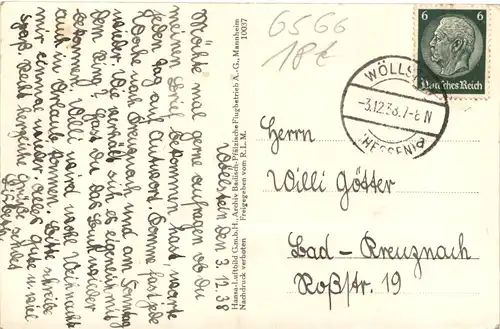 Wöllstein den 3.12.38
Möchte mal gerne anfragen ob du
meinen Brief bekommen hast, warte
jeden Tag auf Antwort. Komme fast jede
Woche nach Kreuznach und am Sonntag
wieder. Wie verhält sich es eigentlich mit
dem Ring? Hast du das Bild wieder
bekommen. Willi wird wohl Weihnacht
auch in Urlaub kommen. Bitte schreibe
mir einmal wieder. Alles gute u. viel
Spaß, recht herzliche Grüße sendet
Hansa-Luftbild G.m.b.H., Archiv Badisch-Pfälzische Flugbetrieb A.-G., Mannheim
Nachdruck verboten Freigegeben vom R.L.M. 10037
6566
18€
6 6
Deutsches Reich
WÖLLST
-3.12.38.7-8 N
(HESSEN) a
Herrn
Willi Götter
Bad-Kreuznach
Roßstr. 19